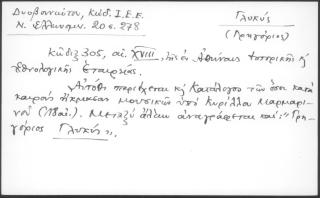 Δυοβουνιώτου, Κώδ. Ι.Ε.Ε.
Ν. Ελληνομν. 20 σ. 278
Γλυκύς
(Γρηγόριος)
Κώδιξ 305, αι. XVIII, της εν Αθήναις Ιστορικής κ
Εθνολογικής Εταιρείας.
Αυτόθι περιέχεται κ Κατάλογος των όσοι κατά
καιρούς ήκμασαν μουσικών υπό Κυρίλλου Μαρμαρι-
νού Μεταξύ άλλων αναγράφεται και: "Γρη-
γόριος Γλυκύς".